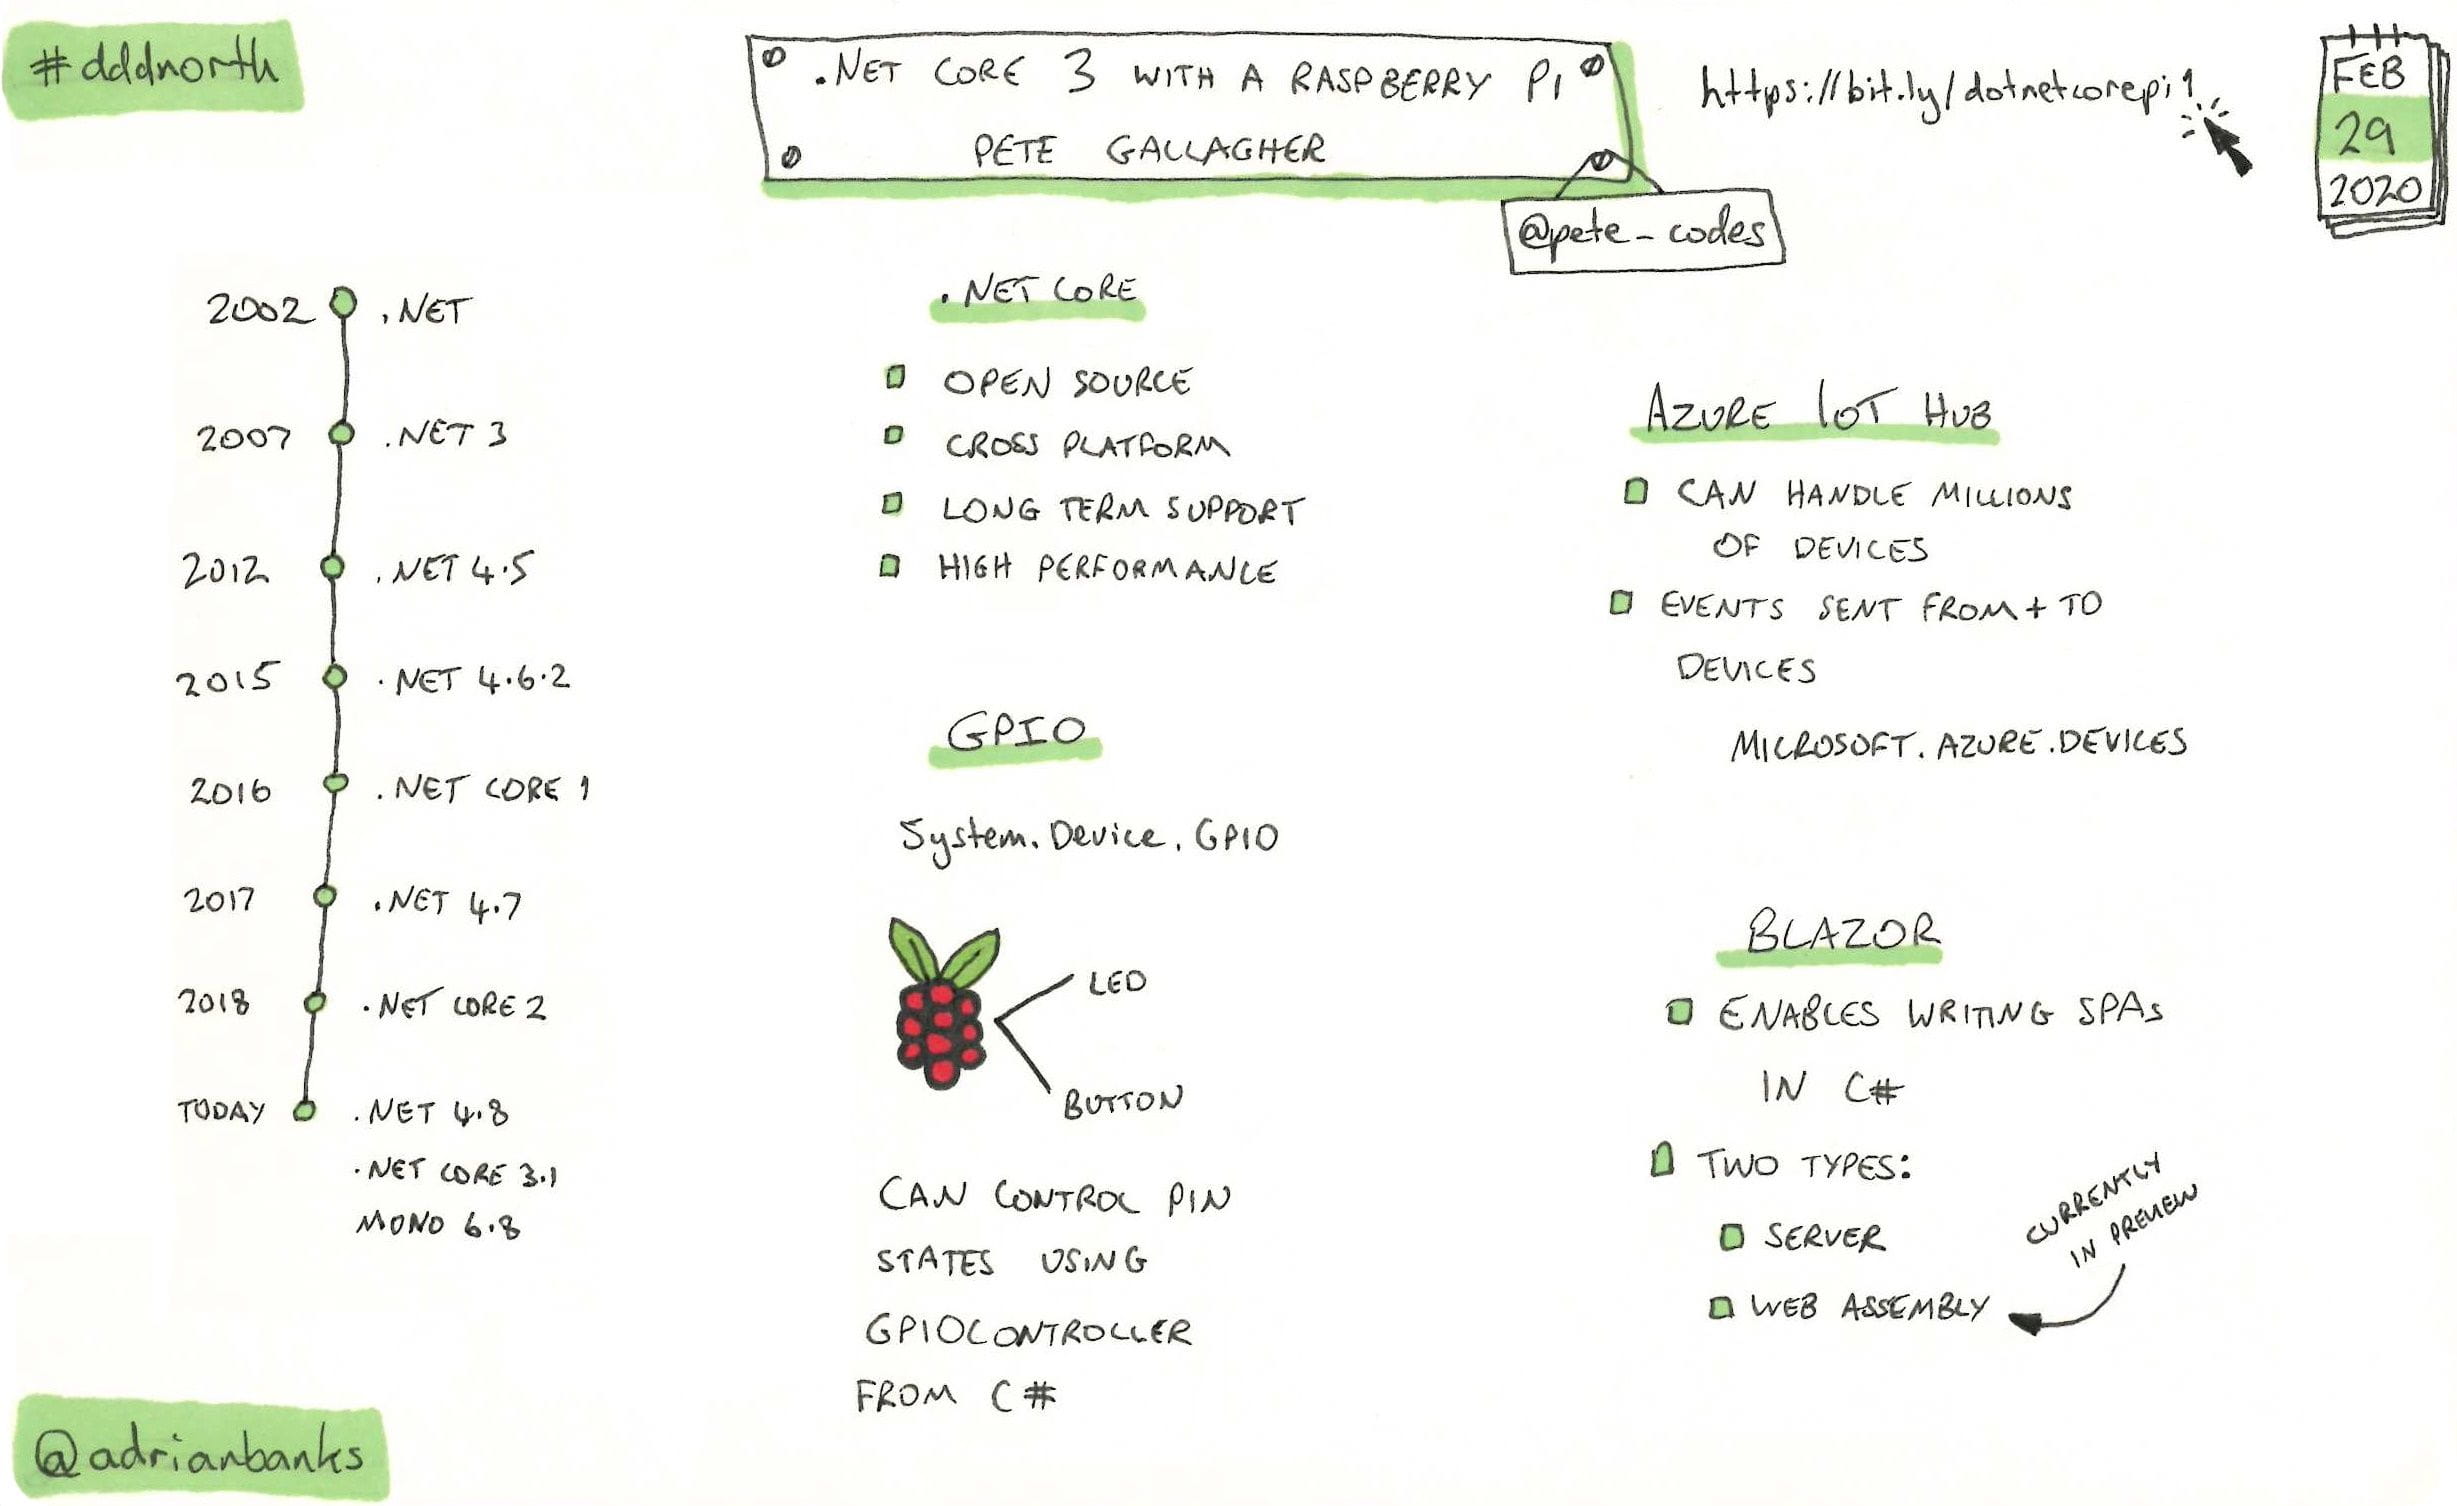 #dddnorth
.NET CORE 3 WITH A RASPBERRY PI
PETE GALLAGHER
@pete_codes
https://bit.ly/dotnetcorepi1
FEB
29
2020
2002 .NET
2007 .NET 3
2012 .NET 4.5
2015 .NET 4.6.2
2016 .NET CORE 1
2017 .NET 4.7
2018 .NET CORE 2
TODAY .NET 4.8
.NET CORE 3.1
MONO 6.8
.NET CORE
OPEN SOURCE
CROSS PLATFORM
LONG TERM SUPPORT
HIGH PERFORMANCE
GPIO
System.Device.GPIO
LED
BUTTON
CAN CONTROL PIN
STATES USING
GPIOCONTROLLER
FROM C#
AZURE IoT HUB
CAN HANDLE MILLIONS
OF DEVICES
EVENTS SENT FROM + TO
DEVICES
MICROSOFT.AZURE.DEVICES
BLAZOR
ENABLES WRITING SPAs
IN C#
TWO TYPES:
SERVER
WEB ASSEMBLY
CURRENTLY
IN PREVIEW
@adrianbanks